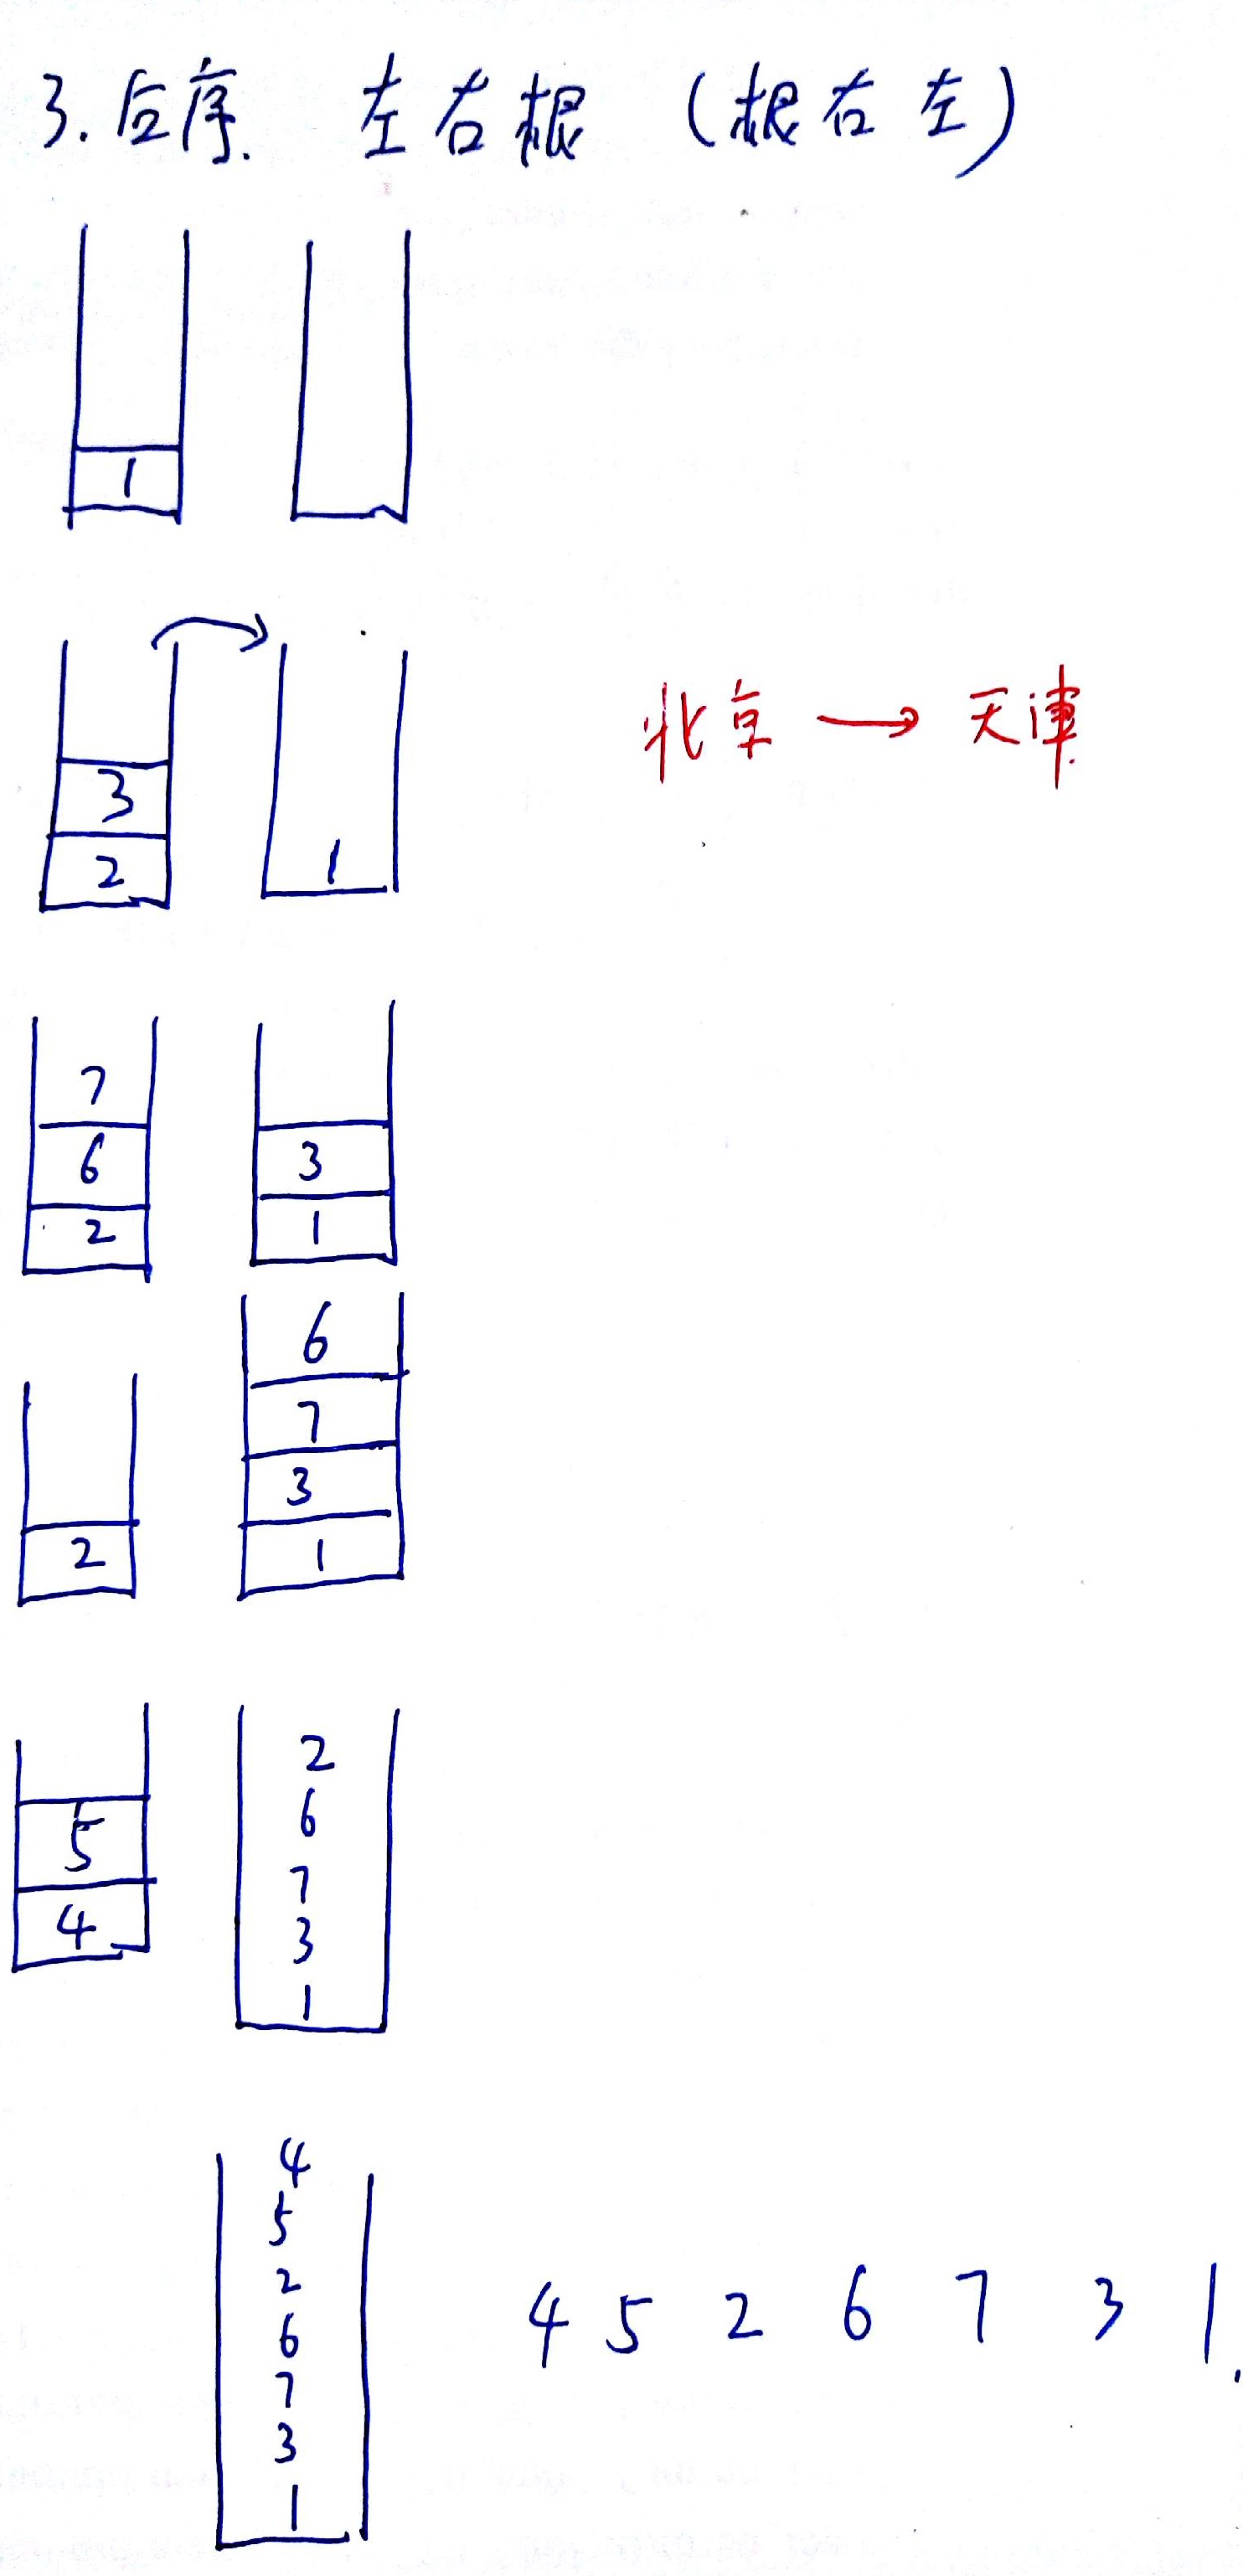 3. 后序. 左右根 (根右左)
1
3
2 1
北京 → 天津
7
6 3
2 1
6
7
3
2 1
2
6
5 7
4 3
1
4
5
2
6
7
3
1
4 5 2 6 7 3 1.